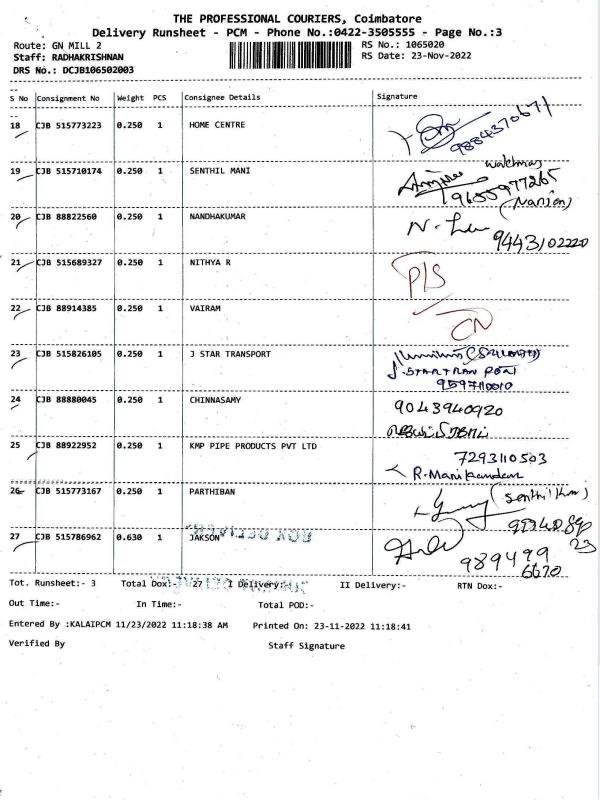 THE PROFESSIONAL COURIERS, Coimbatore
Delivery Runsheet - PCM - Phone No.:0422-3505555 - Page No.:3
Route: GN MILL 2 RS No.: 1065020
Staff: RADHAKRISHNAN RS Date: 23-Nov-2022
DRS No.: DCJB106502003
S No Consignment No Weight PCS Consignee Details Signature
18 CJB 515773223 0.250 1 HOME CENTRE
9884370671
19 CJB 515710174 0.250 1 SENTHIL MANI
watchman
9655977265
20 CJB 88822560 0.250 1 NANDHAKUMAR
9443102220
21 CJB 515689327 0.250 1 NITHYA R P/S
22 CJB 88914385 0.250 1 VAIRAM CN
23 CJB 515826105 0.250 1 J STAR TRANSPORT
J. STAR TRAN PORT
9597110010
24 CJB 88880045 0.250 1 CHINNASAMY 9043940920
25 CJB 88922952 0.250 1 KMP PIPE PRODUCTS PVT LTD 7293110503
R. Manikandan
26 CJB 515773167 0.250 1 PARTHIBAN
27 CJB 515786962 0.630 1 JAKSON BOX DELIVERY
989499
6670
Tot. Runsheet:- 3 Total Dox:- 27 I Delivery:- II Delivery:- RTN Dox:-
Out Time:- In Time:- Total POD:-
Entered By :KALAIPCM 11/23/2022 11:18:38 AM Printed On: 23-11-2022 11:18:41
Verified By Staff Signature